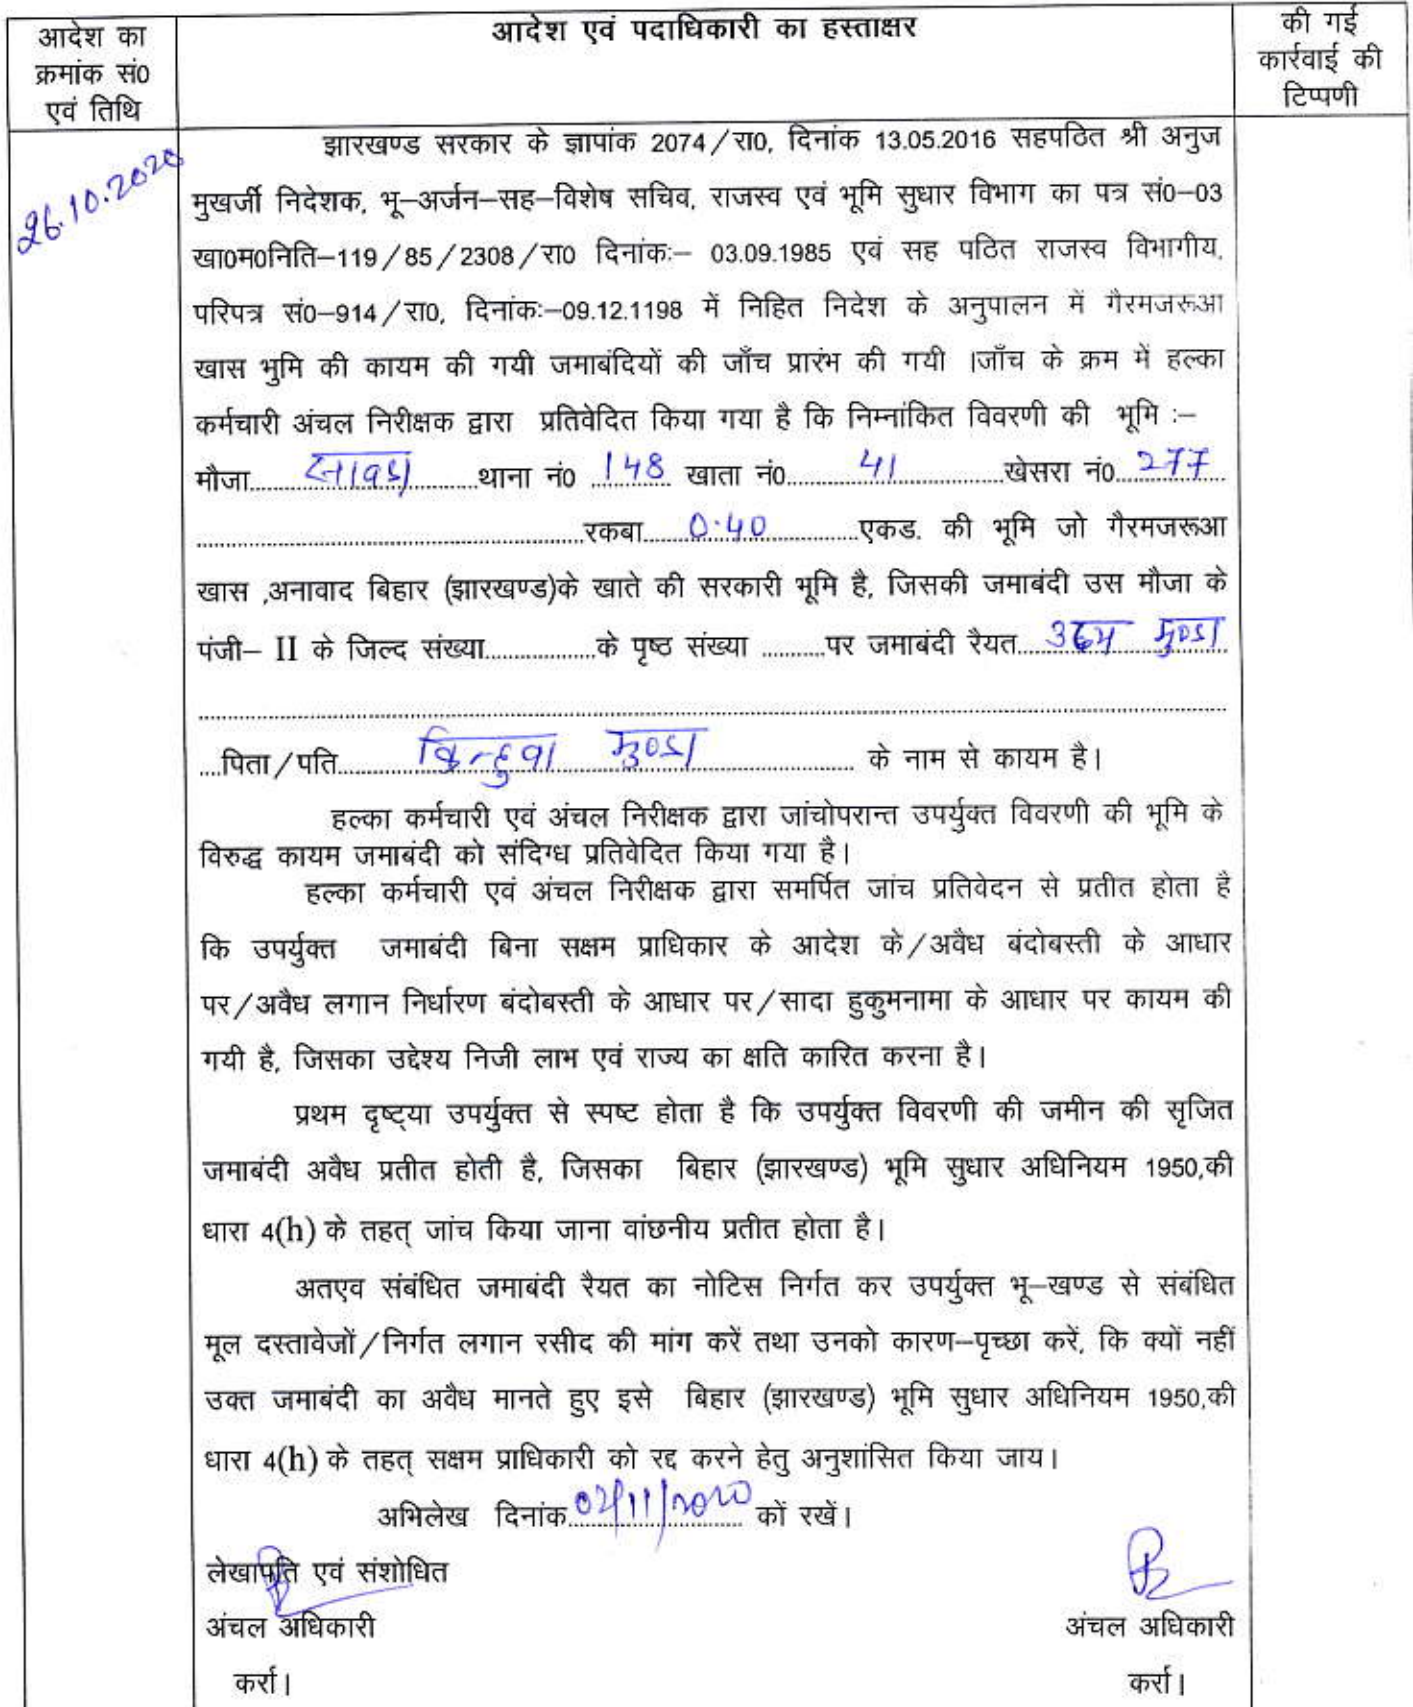 आदेश का
क्रमांक सं0
एवं तिथि
आदेश एवं पदाधिकारी का हस्ताक्षर
की गई
कार्रवाई की
टिप्पणी
26.10.2020
झारखण्ड सरकार के ज्ञापांक 2074/रा0, दिनांक 13.05.2016 सहपठित श्री अनुज
मुखर्जी निदेशक, भू–अर्जन–सह–विशेष सचिव, राजस्व एवं भूमि सुधार विभाग का पत्र सं0–03
खा0म0निति–119/85/2308/रा0 दिनांकः– 03.09.1985 एवं सह पठित राजस्व विभागीय,
परिपत्र सं0–914/रा0, दिनांकः–09.12.1198 में निहित निदेश के अनुपालन में गैरमजरूआ
खास भुमि की कायम की गयी जमाबंदियों की जाँच प्रारंभ की गयी ।जाँच के क्रम में हल्का
कर्मचारी अंचल निरीक्षक द्वारा प्रतिवेदित किया गया है कि निम्नांकित विवरणी की भूमि :–
मौजा.......... थाना नं0 148 खाता नं0 41 खेसरा नं0 277
रकबा 0.40 एकड. की भूमि जो गैरमजरूआ
खास ,अनावाद बिहार (झारखण्ड)के खाते की सरकारी भूमि है, जिसकी जमाबंदी उस मौजा के
पंजी– II के जिल्द संख्या...............के पृष्ठ संख्या .........पर जमाबंदी रैयत उदय मुण्डा
....पिता/पति मुण्डा के नाम से कायम है।
हल्का कर्मचारी एवं अंचल निरीक्षक द्वारा जांचोपरान्त उपर्युक्त विवरणी की भूमि के
विरुद्ध कायम जमाबंदी को संदिग्ध प्रतिवेदित किया गया है।
हल्का कर्मचारी एवं अंचल निरीक्षक द्वारा समर्पित जांच प्रतिवेदन से प्रतीत होता है
कि उपर्युक्त जमाबंदी बिना सक्षम प्राधिकार के आदेश के/अवैध बंदोबस्ती के आधार
पर/अवैध लगान निर्धारण बंदोबस्ती के आधार पर/सादा हुकुमनामा के आधार पर कायम की
गयी है, जिसका उद्देश्य निजी लाभ एवं राज्य का क्षति कारित करना है।
प्रथम दृष्ट्या उपर्युक्त से स्पष्ट होता है कि उपर्युक्त विवरणी की जमीन की सृजित
जमाबंदी अवैध प्रतीत होती है, जिसका बिहार (झारखण्ड) भूमि सुधार अधिनियम 1950,की
धारा 4(h) के तहत् जांच किया जाना वांछनीय प्रतीत होता है।
अतएव संबंधित जमाबंदी रैयत का नोटिस निर्गत कर उपर्युक्त भू–खण्ड से संबंधित
मूल दस्तावेजों/निर्गत लगान रसीद की मांग करें तथा उनको कारण–पृच्छा करें, कि क्यों नहीं
उक्त जमाबंदी का अवैध मानते हुए इसे बिहार (झारखण्ड) भूमि सुधार अधिनियम 1950,की
धारा 4(h) के तहत् सक्षम प्राधिकारी को रद्द करने हेतु अनुशांसित किया जाय।
अभिलेख दिनांक 02/11/2020 कों रखें।
लेखापति एवं संशोधित
अंचल अधिकारी अंचल अधिकारी
कर्रा। कर्रा।